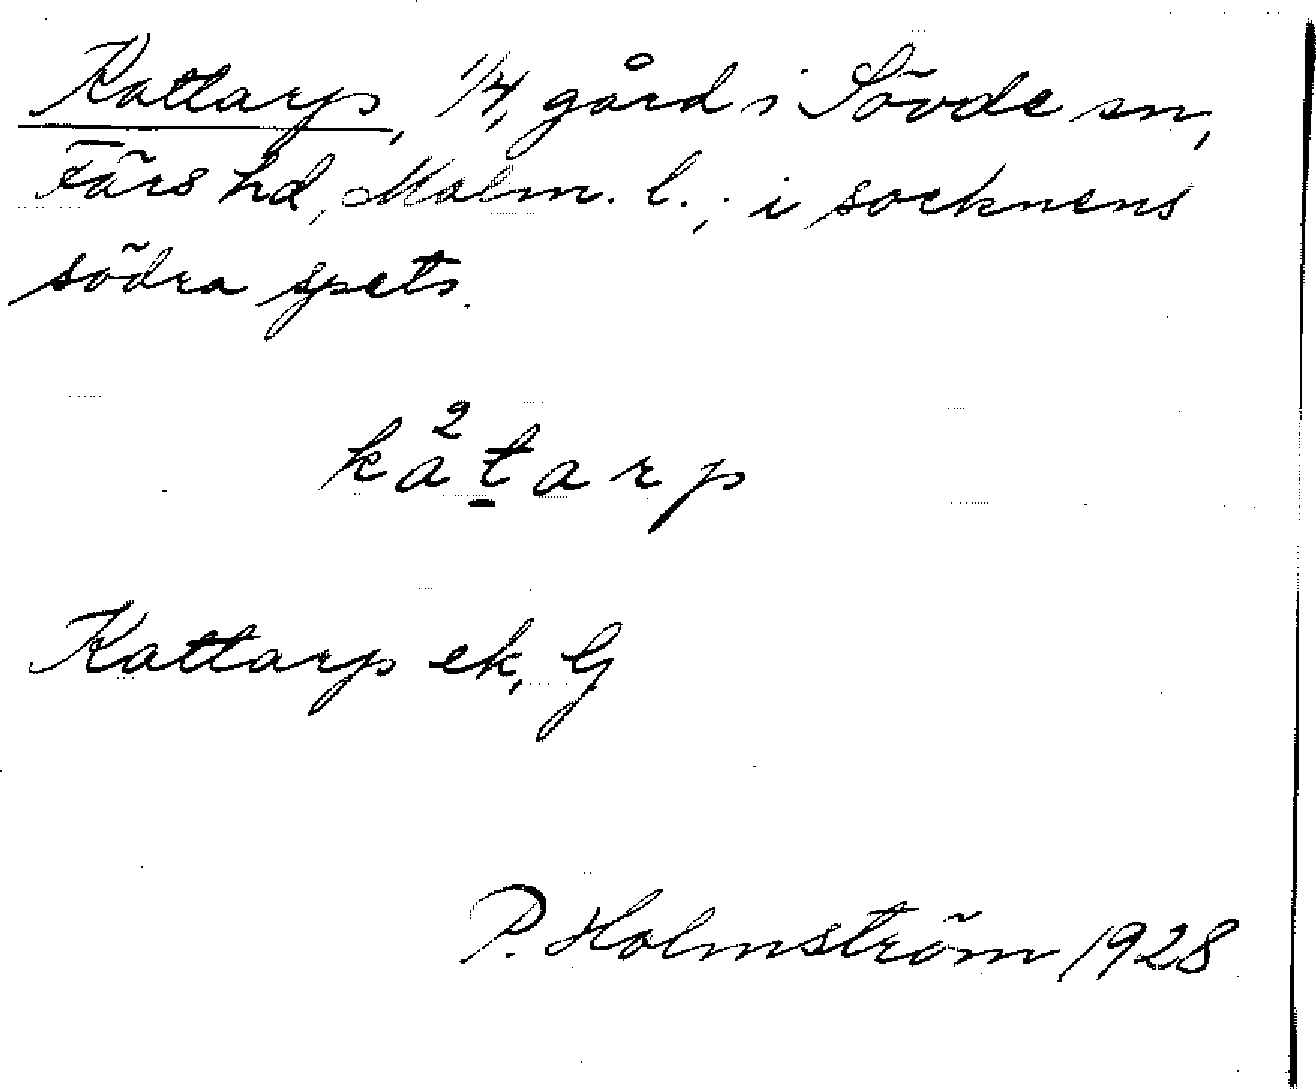 Kattarp, 1/4, gård i Sövde sn,
Färs hd, Malm. l., i socknens
södra spets.
ka²ṯarp
Kattarp ek, G
P. Holmström 1928